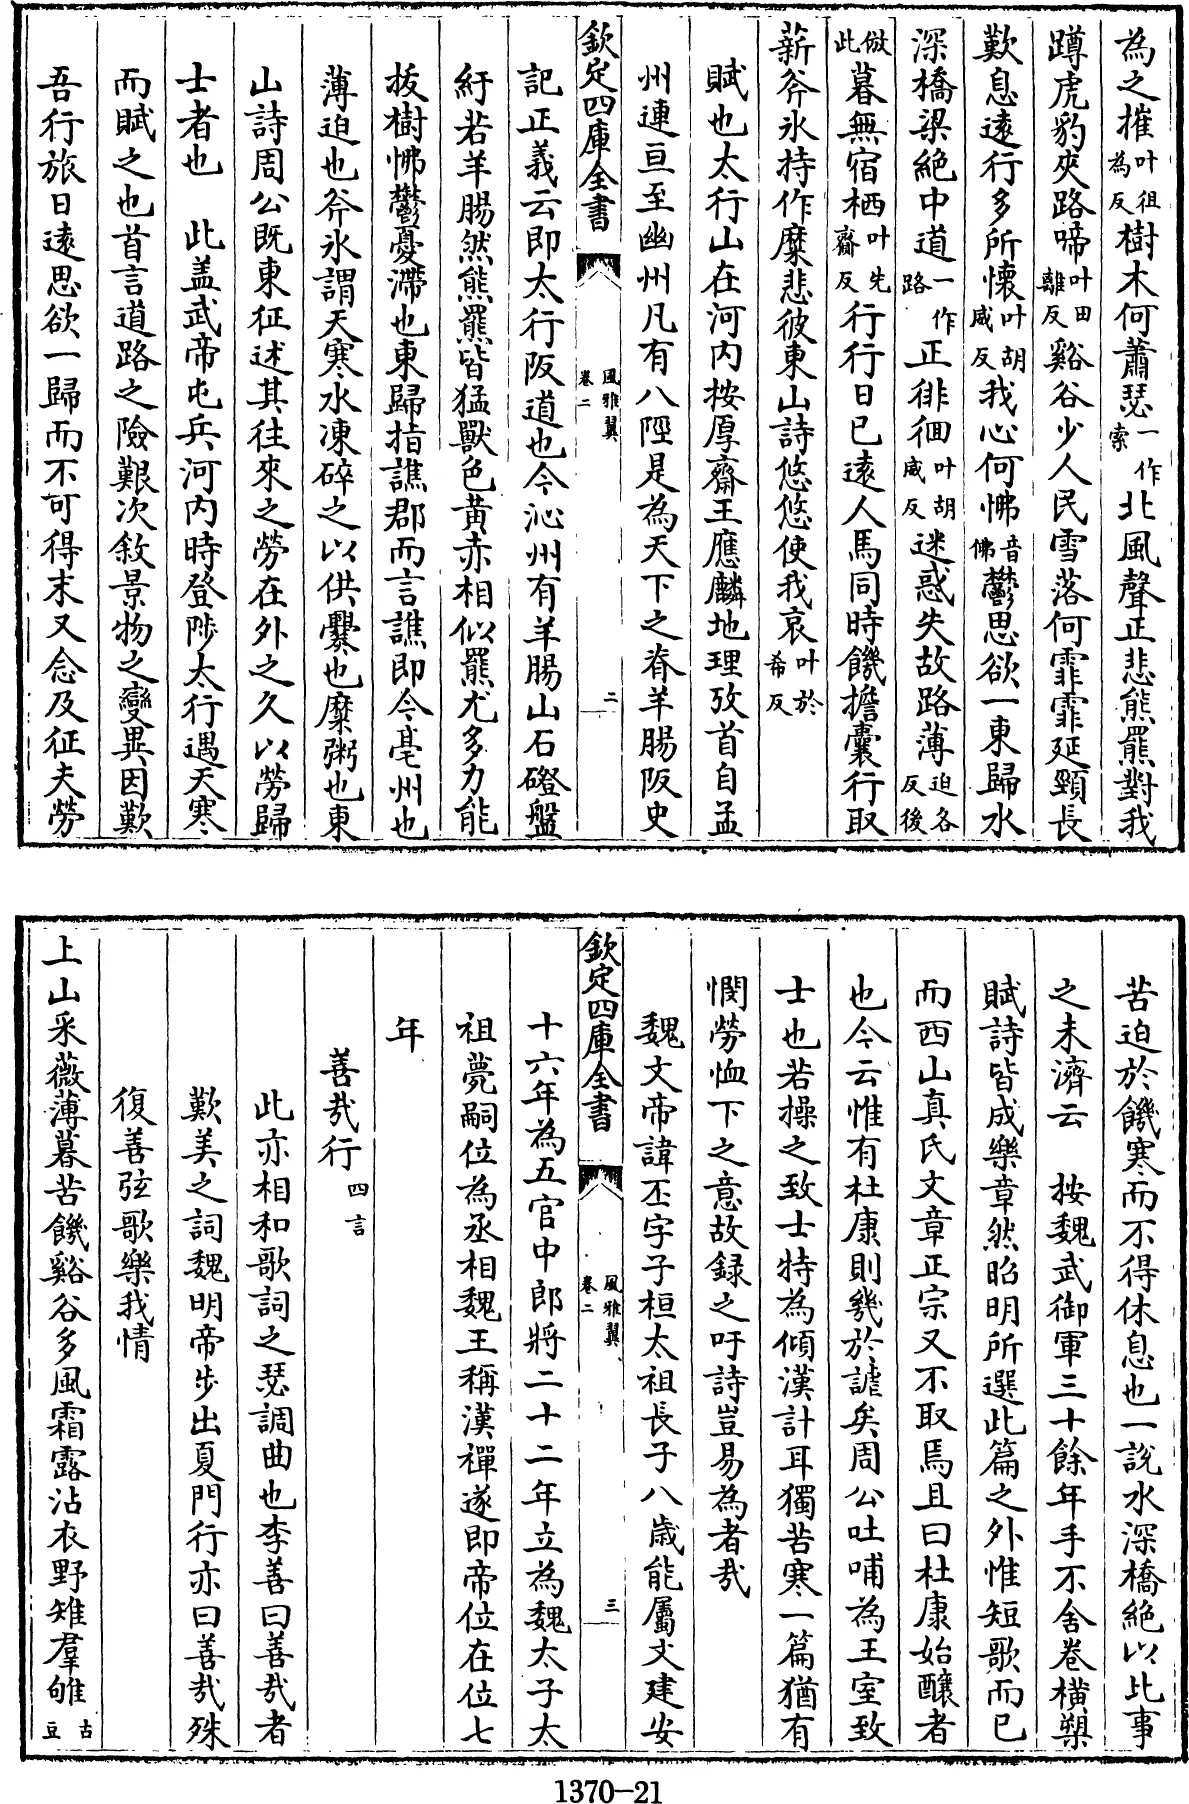 為之摧叶徂為反樹木何蕭瑟一作索北風聲正悲熊羆對我
蹲虎豹夾路啼叶田離反谿谷少人民雪落何霏霏延頸長
歎息遠行多所懷叶胡威反我心何怫音佛鬱思欲一東歸水
深橋梁絶中道一作路正徘徊叶胡威反迷惑失故路薄迫各反後
倣此暮無宿栖叶先齋反行行日已遠人馬同時饑擔囊行取
薪斧氷持作糜悲彼東山詩悠悠使我哀叶於希反
賦也太行山在河内按厚齋王應麟地理攷首自孟
州連亘至幽州凡有八陘是為天下之脊羊腸阪史
欽定四庫全書 風雅翼 卷二 二
記正義云即太行阪道也今沁州有羊腸山石磴盤
紆若羊腸然熊羆皆猛獸色黄赤相似羆尤多力能
拔樹怫鬱憂滯也東歸指譙郡而言譙即今亳州也
薄迫也斧氷謂天寒水凍碎之以供爨也糜粥也東
山詩周公既東征述其往來之勞在外之久以勞歸
士者也 此盖武帝屯兵河内時登陟太行遇天寒
而賦之也首言道路之險艱次敘景物之變異因歎
吾行旅日遠思欲一歸而不可得末又念及征夫勞
苦迫於饑寒而不得休息也一說水深橋絶以比事
之未濟云 按魏武御軍三十餘年手不舍卷横槊
賦詩皆成樂章然昭明所選此篇之外惟短歌而已
而西山真氏文章正宗又不取焉且曰杜康始釀者
也今云惟有杜康則幾於謔矣周公吐哺為王室致
士也若操之致士特為傾漢計耳獨苦寒一篇猶有
憫勞恤下之意故録之吁詩豈易為者哉
魏文帝諱丕字子桓太祖長子八歲能屬文建安
欽定四庫全書 風雅翼 卷二 三
十六年為五官中郎將二十二年立為魏太子太
祖薨嗣位為丞相魏王稱漢禪遂即帝位在位七
年
善哉行四言
此亦相和歌詞之瑟調曲也李善曰善哉者
歎美之詞魏明帝步出夏門行亦曰善哉殊
復善弦歌樂我情
上山采薇薄暮苦饑谿谷多風霜露沾衣野雉羣雊古豆
1370-21